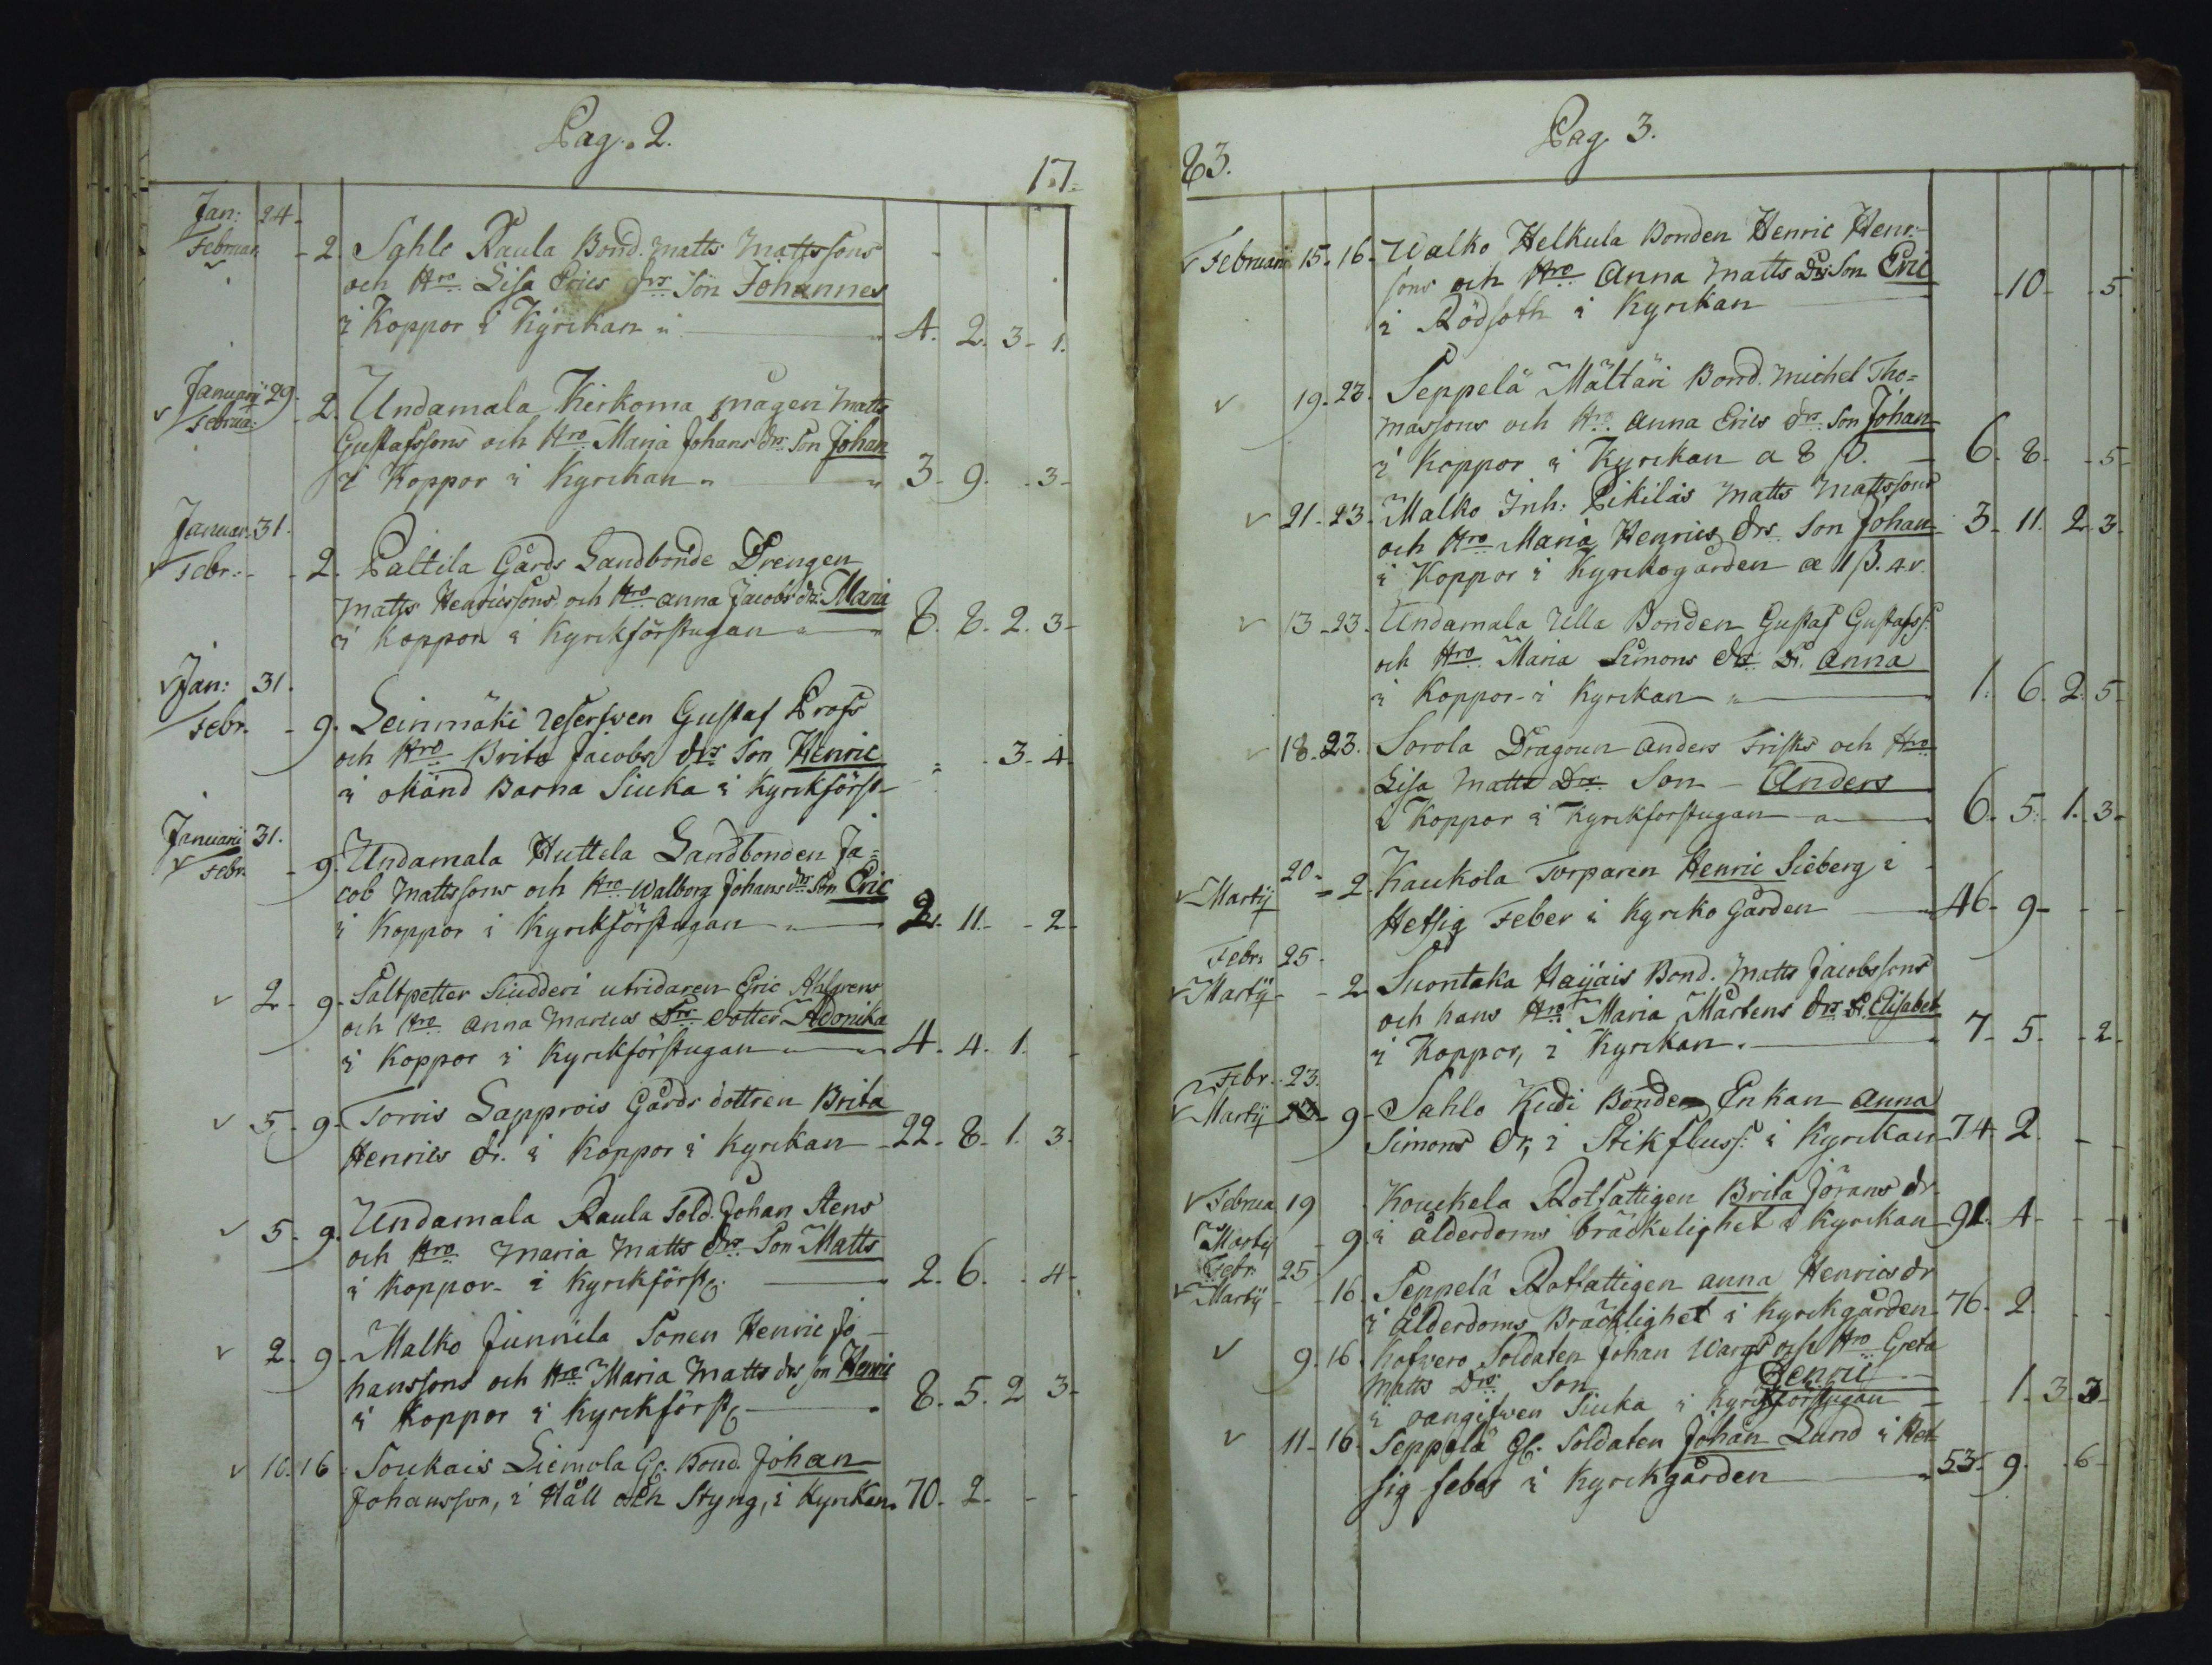 Pag. 2.
17.
Jan: 24-
Februar. - 2. Sahle Raula Bond. Matts Mattssons
och Hro Lisa Erics drs Son Johannes
i Koppor i Kyrckan 4. 2. 3- 1.
Januarii 29.
Februa: - 2. Undamala Kirkoma mågen Matts
Gustafssons och Hro Maria Johans dr. Son Johan
i Koppor i Kyrckan 3- 9. - 3-
Januar. 31.
Febr: - 2. Paltila Gårds Landbonde Drengen
Matts Henricssons och Hro Anna Jacobs dr: Maria
i Koppor i Kyrckförstugan 8. 8. 2. 3-
Jan: 31.
Febr. - 9. Leinmäki Reserfven Gustaf Profs
och Hro Brita Jacobs drs Son Henric
i okänd Barna Siuka i Kyrckförst- - 3- 4.
Januarii 31.
Febr. - 9. Undamala Huttela Landbonden Ja=
cob Mattssons och Hro Walborg Johans dr Son Eric
i Koppor i Kyrckförstugan 2. 11. - 2-
2 - 9. Saltpetter Siudderi utridaren Eric Ahlgrens
och Hro Anna Dr dotter Adonika
i Koppor i Kyrckförstugan 4. 4. 1.
5 - 9. Torvis Lapprois Gårds dottren Brita
Henrics dr. i Koppor i Kyrckan 22. 8. 1. 3.
5 - 9. Undamala Raula Sold. Johan Stens
och Hro Maria Matts drs Son Matts
i Koppor i Kyrckförst. 2. 6. - 4-
2 - 9. Malko Junnila Sonen Henric Jo-
hanssons och Hro Maria Matts drs son Henric
i Koppor i Kyrckförst. 8. 5. 2 3-
10. 16. Soukais Liemola Gl. Bond. Johan
Johansson, i Håll och Styng, i Kyrckan 70. 2. - -
Pag. 3.
83.
Februari 15. 16. Walko Helkula Bonden Henric Henr-
sons och Hro Anna Matts Drs Son Eric
i Rödsoth i Kyrckan - 10 - - 5.
19. 23. Seppelä Mältäri Bond. Michel Tho=
massons och Hro Anna Erics drs Son Johan
i Koppor i Kyrckan a 8 β. 6. 8. - 5-
21 - 23. Malko Inh: Pikiläs Matts Mattssons
och Hro Maria Henrics drs Son Johan 3. 11. 2. 3.
i Koppor i Kyrckogården a 1 β. 4 r.
13 - 23. Undamala Ulla Bonden Gustaf Gustafss:
och Hro Maria Simons drs Dr. Anna
i Koppor i Kyrckan 1. 6. 2. 5.
18. 23. Sorola Dragoun Anders Frisks och Hro
Lisa Matts Drs Son - Anders
i Koppor i Kyrckforstugan 6. 5. 1. 3-
20 -
Martij = 2. Kaukola Torparen Henric Sieberg i
Hetsig Feber i Kyrcko Gården 46 - 9 - -
Febr: 25 -
Martij - 2. Suontaka Haijais Bond. Matts Jacobssons
och hans Hro Maria Mårtens drs Dr. Elisabet
i Koppor, i Kyrckan. 7. 5. - 2-
Febr. 23.
Martij 9 - Sahlo Kudi Bonde Enkan Anna
Simons dr, i Stikfluss: i Kyrckan 74. 2. -
Februa 19 Koukela Rotfattigen Brita Jörans dr.
Martij - 9. i ålderdoms bräckelighet i Kyrckan 91. 4 - -
Febr 25
Martij - 16. Seppelä Rotfattigen Anna Henrics dr
i ålderdoms Bräcklighet i Kyrckgården 76. 2.
9. 16. Kofvero Soldaten Johan Wargs och Hro Greta
Matts Drs Son Henric
i oangifven Siuka i Kyrckförstugan - 1. 3. 3-
11 - 16. Seppelä Gl. Soldaten Johan Lund i Het-
sig feber i Kyrckgården 53. 9. - 6-